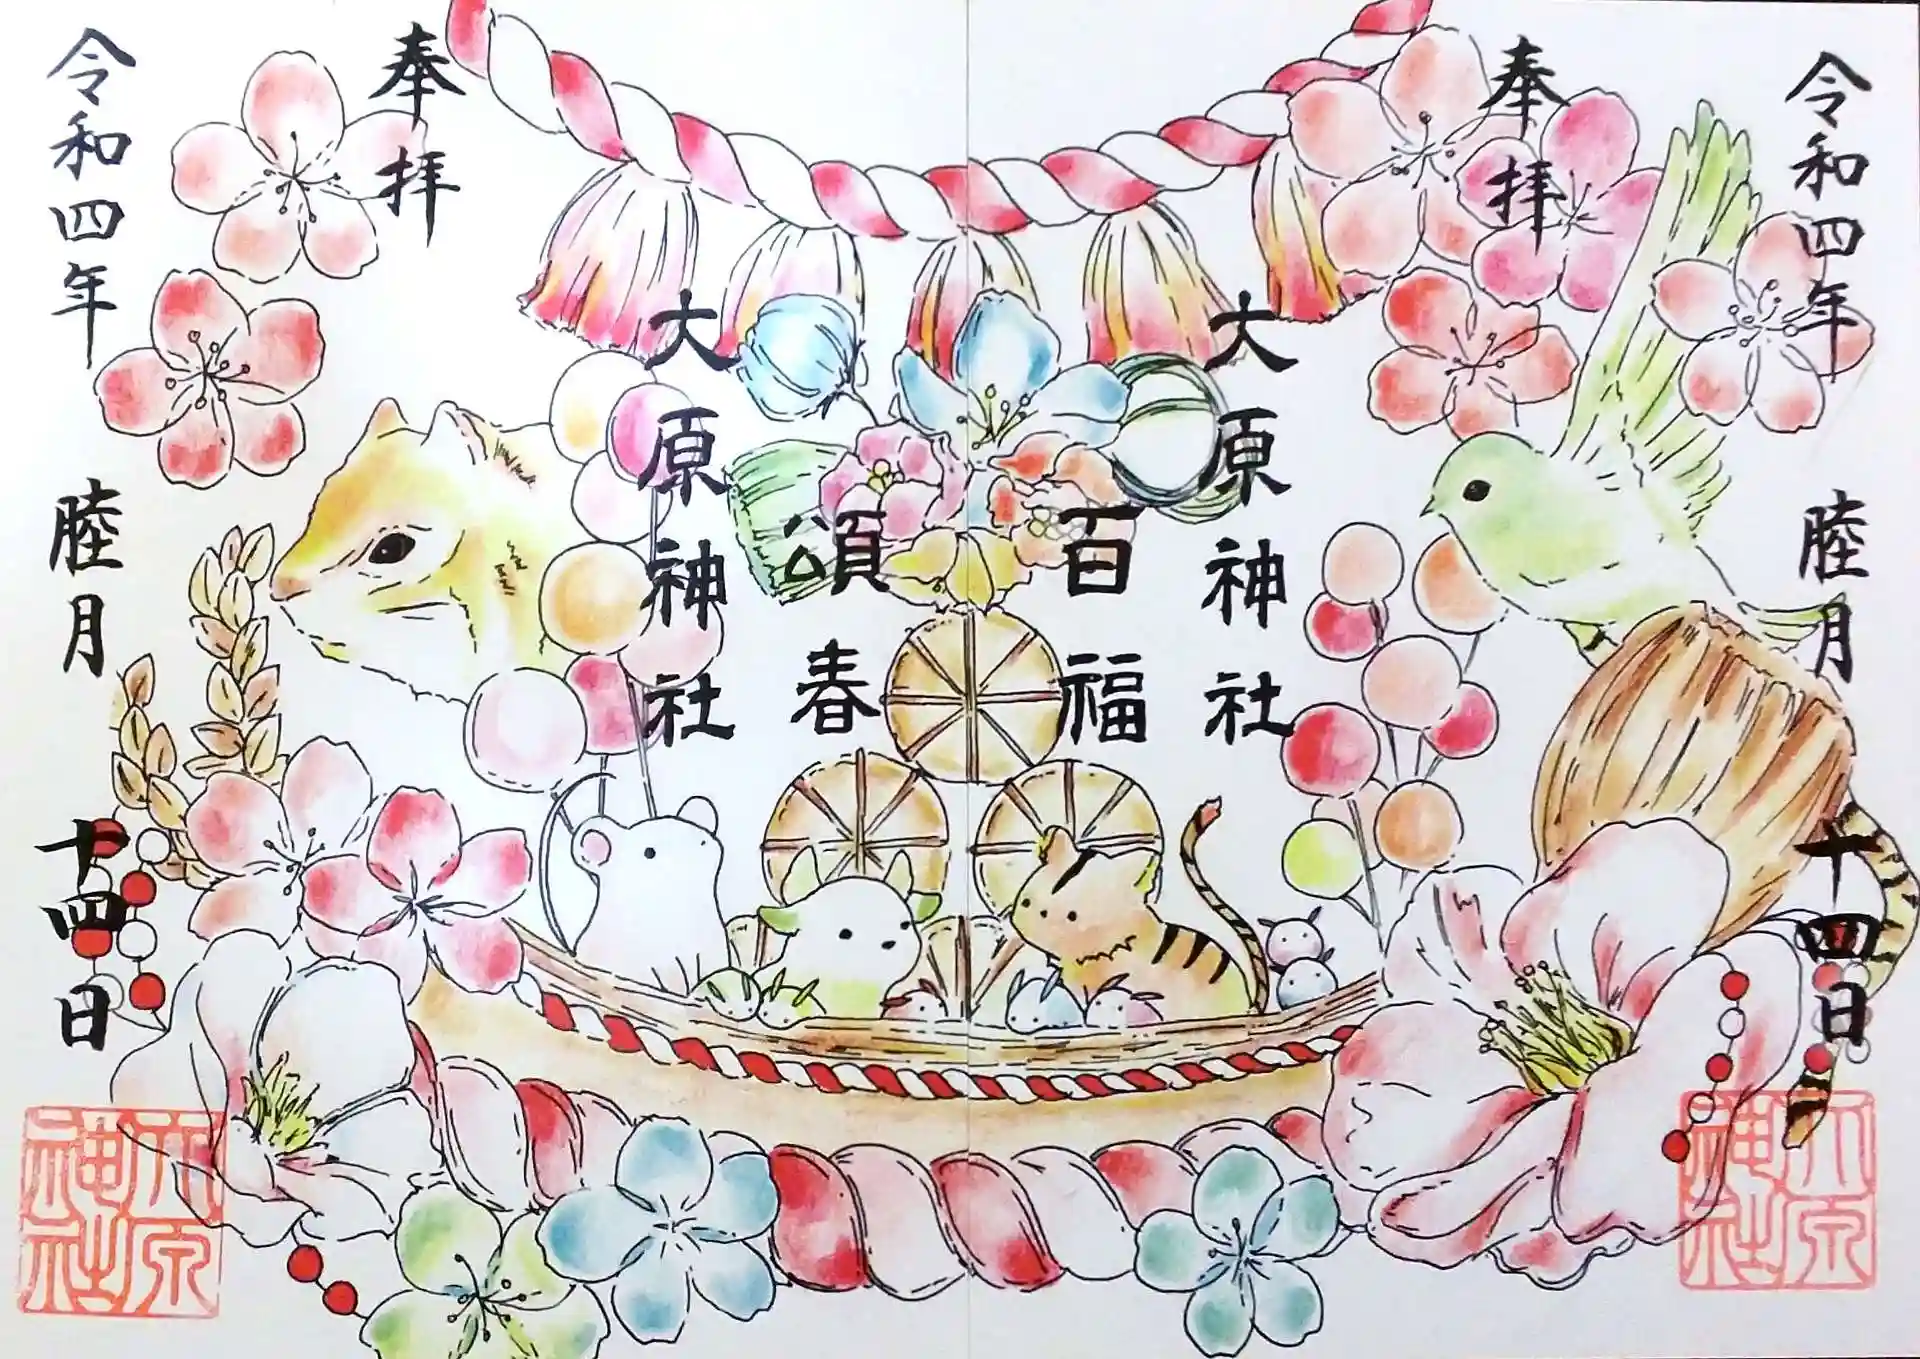 令和四年 睦月 十四日
奉拝
大原神社
百福
頌春
大原神社
奉拝
令和四年 睦月 十四日
大原神社
大原神社